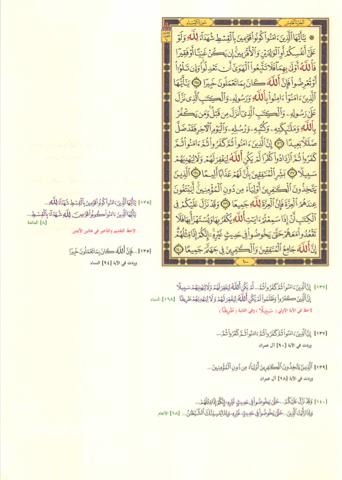 ۞ يَٰٓأَيُّهَا ٱلَّذِينَ ءَامَنُوا۟ كُونُوا۟ قَوَّٰمِينَ بِٱلْقِسْطِ شُهَدَآءَ لِلَّهِ وَلَوْ
عَلَىٰٓ أَنفُسِكُمْ أَوِ ٱلْوَٰلِدَيْنِ وَٱلْأَقْرَبِينَ إِن يَكُنْ غَنِيًّا أَوْ فَقِيرًا
فَٱللَّهُ أَوْلَىٰ بِهِمَا فَلَا تَتَّبِعُوا۟ ٱلْهَوَىٰٓ أَن تَعْدِلُوا۟ وَإِن تَلْوُۥٓا۟
أَوْ تُعْرِضُوا۟ فَإِنَّ ٱللَّهَ كَانَ بِمَا تَعْمَلُونَ خَبِيرًا ١٣٥ يَٰٓأَيُّهَا
ٱلَّذِينَ ءَامَنُوٓا۟ ءَامِنُوا۟ بِٱللَّهِ وَرَسُولِهِۦ وَٱلْكِتَٰبِ ٱلَّذِى نَزَّلَ
عَلَىٰ رَسُولِهِۦ وَٱلْكِتَٰبِ ٱلَّذِىٓ أَنزَلَ مِن قَبْلُ وَمَن يَكْفُرْ
بِٱللَّهِ وَمَلَٰٓئِكَتِهِۦ وَكُتُبِهِۦ وَرُسُلِهِۦ وَٱلْيَوْمِ ٱلْءَاخِرِ فَقَدْ ضَلَّ
ضَلَٰلًۢا بَعِيدًا ١٣٦ إِنَّ ٱلَّذِينَ ءَامَنُوا۟ ثُمَّ كَفَرُوا۟ ثُمَّ ءَامَنُوا۟ ثُمَّ
كَفَرُوا۟ ثُمَّ ٱزْدَادُوا۟ كُفْرًا لَّمْ يَكُنِ ٱللَّهُ لِيَغْفِرَ لَهُمْ وَلَا لِيَهْدِيَهُمْ
سَبِيلًۢا ١٣٧ بَشِّرِ ٱلْمُنَٰفِقِينَ بِأَنَّ لَهُمْ عَذَابًا أَلِيمًا ١٣٨ ٱلَّذِينَ
يَتَّخِذُونَ ٱلْكَٰفِرِينَ أَوْلِيَآءَ مِن دُونِ ٱلْمُؤْمِنِينَ أَيَبْتَغُونَ
عِندَهُمُ ٱلْعِزَّةَ فَإِنَّ ٱلْعِزَّةَ لِلَّهِ جَمِيعًا ١٣٩ وَقَدْ نَزَّلَ عَلَيْكُمْ فِى
ٱلْكِتَٰبِ أَنْ إِذَا سَمِعْتُمْ ءَايَٰتِ ٱللَّهِ يُكْفَرُ بِهَا وَيُسْتَهْزَأُ بِهَا فَلَا
تَقْعُدُوا۟ مَعَهُمْ حَتَّىٰ يَخُوضُوا۟ فِى حَدِيثٍ غَيْرِهِۦٓ إِنَّكُمْ إِذًا مِّثْلُهُمْ
إِنَّ ٱللَّهَ جَامِعُ ٱلْمُنَٰفِقِينَ وَٱلْكَٰفِرِينَ فِى جَهَنَّمَ جَمِيعًا ١٤٠
١٠٠
[١٣٥] يَٰٓأَيُّهَا ٱلَّذِينَ ءَامَنُوا۟ كُونُوا۟ قَوَّٰمِينَ بِٱلْقِسْطِ شُهَدَآءَ لِلَّهِ...
يَٰٓأَيُّهَا ٱلَّذِينَ ءَامَنُوا۟ كُونُوا۟ قَوَّٰمِينَ لِلَّهِ شُهَدَآءَ بِٱلْقِسْطِ...
[٨] المائدة
لاحظ التقديم والتأخير في هاتين الآيتين
[١٣٥] ...فَإِنَّ ٱللَّهَ كَانَ بِمَا تَعْمَلُونَ خَبِيرًا
وردت في الآية [٩٤] النساء
[١٣٧] إِنَّ ٱلَّذِينَ ءَامَنُوا۟ ثُمَّ كَفَرُوا۟ ثُمَّ... لَّمْ يَكُنِ ٱللَّهُ لِيَغْفِرَ لَهُمْ وَلَا لِيَهْدِيَهُمْ سَبِيلًۢا
إِنَّ ٱلَّذِينَ كَفَرُوا۟ وَظَلَمُوا۟ لَمْ يَكُنِ ٱللَّهُ لِيَغْفِرَ لَهُمْ وَلَا لِيَهْدِيَهُمْ طَرِيقًا [١٦٨] النساء
لاحظ في الآية الأولى (سَبِيلًا) وفي الثانية (طَرِيقًا)
[١٣٧] إِنَّ ٱلَّذِينَ ءَامَنُوا۟ ثُمَّ كَفَرُوا۟ ثُمَّ ءَامَنُوا۟ ثُمَّ كَفَرُوا۟ ثُمَّ...
وردت في الآية [٩٠] آل عمران
[١٣٩] ٱلَّذِينَ يَتَّخِذُونَ ٱلْكَٰفِرِينَ أَوْلِيَآءَ مِن دُونِ ٱلْمُؤْمِنِينَ...
وردت في الآية [٢٨] آل عمران
[١٤٠] وَقَدْ نَزَّلَ عَلَيْكُمْ... حَتَّىٰ يَخُوضُوا۟ فِى حَدِيثٍ غَيْرِهِۦٓ إِنَّكُمْ إِذًا مِّثْلُهُمْ...
وَإِذَا رَأَيْتَ ٱلَّذِينَ... حَتَّىٰ يَخُوضُوا۟ فِى حَدِيثٍ غَيْرِهِۦ وَإِمَّا يُنسِيَنَّكَ ٱلشَّيْطَٰنُ... [٦٨] الأنعام